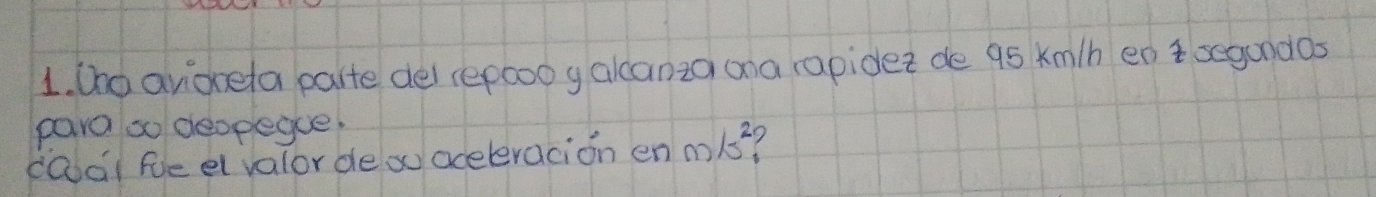 1. Una avioneta parte del reposo y alcanza una rapidez de 95 km/h en segundos
para su despegue.
¿Cuál fue el valor de su aceleración en m/s²?